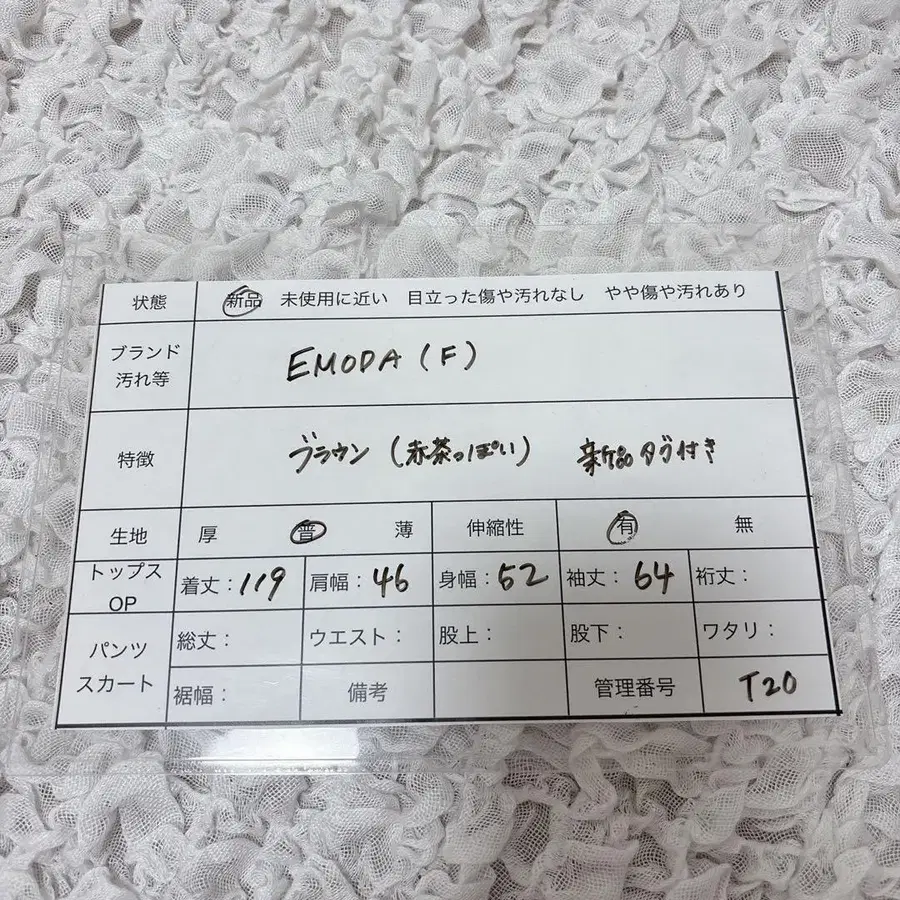 状態 新品 未使用に近い 目立った傷や汚れなし やや傷や汚れあり
ブランド
汚れ等
EMODA (F)
特徴 ブラウン (赤茶っぽい) 新品タグ付き
生地 厚 普 薄 伸縮性 有 無
トップス
OP
着丈:119 肩幅:46 身幅:52 袖丈:64 裄丈:
パンツ
スカート
総丈: ウエスト: 股上: 股下: ワタリ:
裾幅: 備考 管理番号 T20